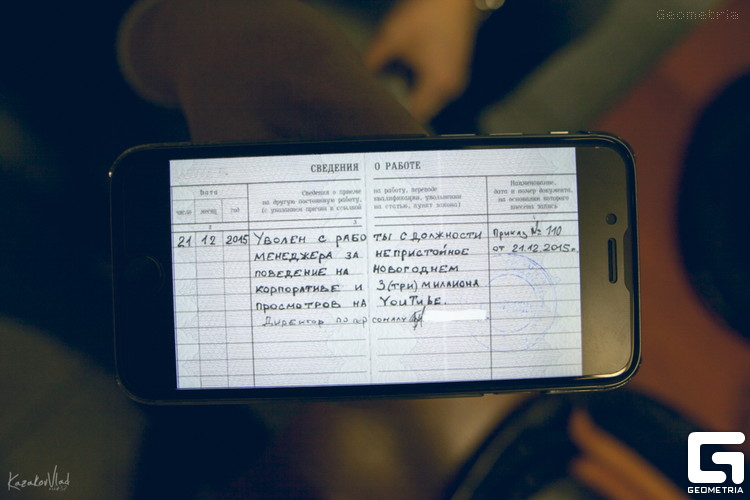 Geometria
СВЕДЕНИЯ О РАБОТЕ
Дата
Сведения о приеме на работу, переводе
на другую постоянную работу, квалификации, увольнении
(с указанием причин и ссылкой на статью, пункт закона)
Наименование,
дата и номер документа,
на основании которого
внесена запись
число месяц год
2 3 4
21 12 2015 УВОЛЕН С РАБОТЫ С ДОЛЖНОСТИ Приказ № 110
МЕНЕДЖЕРА ЗА НЕПРИСТОЙНОЕ от 21.12.2015г.
ПОВЕДЕНИЕ НА НОВОГОДНЕМ
КОРПОРАТИВЕ И 3(ТРИ) МИЛЛИОНА
ПРОСМОТРОВ НА YOUTUBE.
Директор по персоналу
KazakovVlad
GEOMETRIA